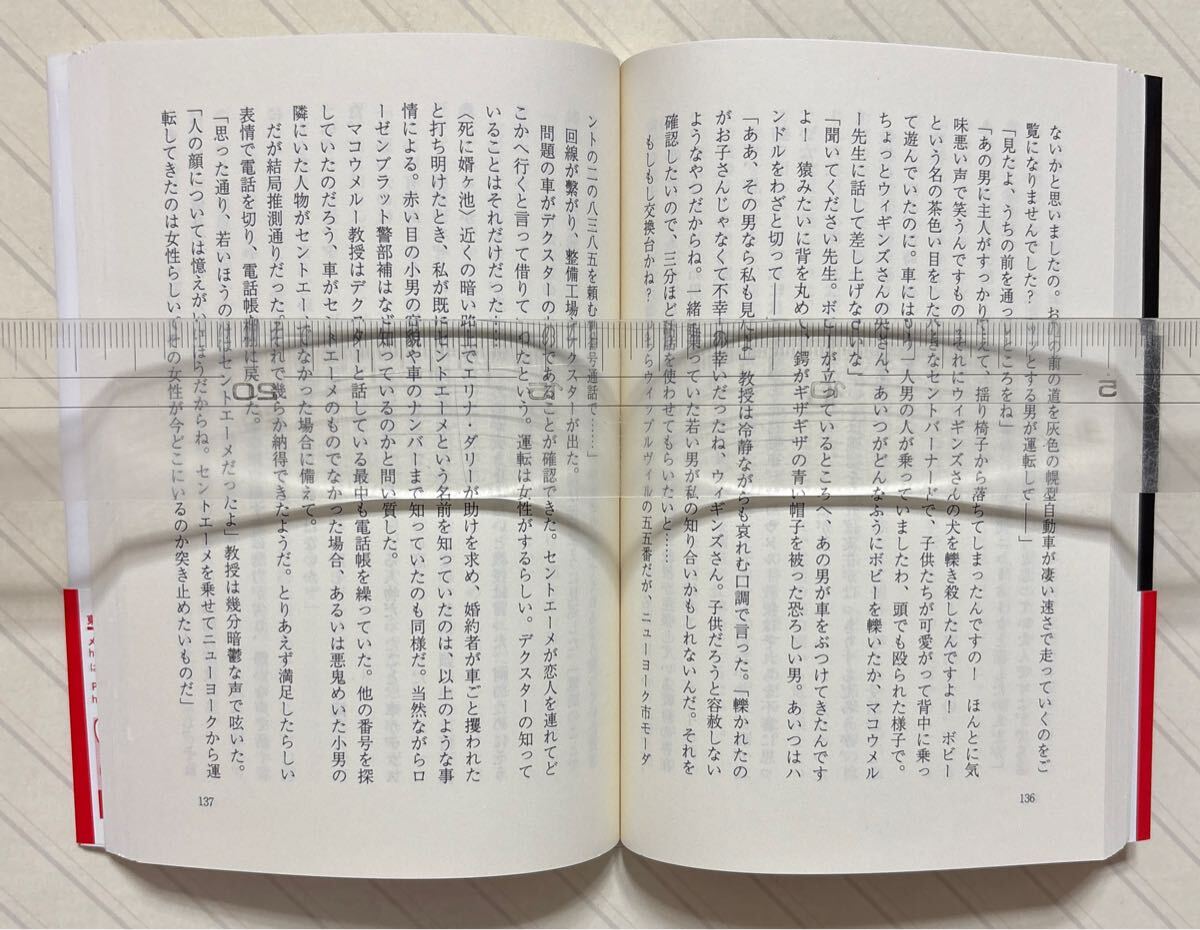 ないかと思いましたの。お の前の道を灰色の幌型自動車が凄い速さで走っていくのをご
覧になりませんでした? ッとする男が運転して――」
「見たよ、うちの前を通っ ところをね」
「あの男に主人がすっかり えて、揺り椅子から落ちてしまったんですの! ほんとに気
味悪い声で笑うんですもの それにウィギンズさんの犬を轢き殺したんですよ! ボビー
という名の茶色い目をした きなセントバーナードで、子供たちが可愛がって背中に乗っ
て遊んでいたのに。車にはもう一人男の人が乗っていましたわ、頭でも殴られた様子で。
ちょっとウィギンズさんの奥さん、あいつがどんなふうにボビーを轢いたか、マコウメル
ー先生に話して差し上げなさいな」
「聞いてください先生。ボビーが立っているところへ、あの男が車をぶつけてきたんです
よ! 猿みたいに背を丸めて、鍔がギザギザの青い帽子を被った恐ろしい男。あいつはハ
ンドルをわざと切って――」
「ああ、その男なら私も見たよ」教授は冷静ながらも哀れむ口調で言った。「轢かれたの
がお子さんじゃなくて不幸中の幸いだったね、ウィギンズさん。子供だろうと容赦しない
ようなやつだからね。一緒に乗っていた若い男が私の知り合いかもしれないんだ。それを
確認したいので、三分ほど電話を使わせてもらいたいと……
もしもし交換台かね? こちらウィップルヴィルの五五番だが、ニューヨーク市モーダ
136
ントの二の八三八五を頼む 番号通話で……」
回線が繋がり、整備工場 デクスターが出た。
問題の車がデクスターの のであることが確認できた。セントエーメが恋人を連れてど
こかへ行くと言って借りて ったという。運転は女性がするらしい。デクスターの知って
いることはそれだけだった……
〈死に婿ヶ池〉近くの暗い路上でエリナ・ダリーが助けを求め、婚約者が車ごと攫われた
と打ち明けたとき、私が既にセントエーメという名前を知っていたのは、以上のような事
情による。赤い目の小男の容貌や車のナンバーまで知っていたのも同様だ。当然ながらロ
ーゼンブラット警部補はなぜ知っているのかと問い質した。
マコウメルー教授はデクスターと話している最中も電話帳を繰っていた。他の番号を探
していたのだろう、車がセントエーメのものでなかった場合、あるいは悪鬼めいた小男の
隣にいた人物がセントエーメでなかった場合に備えて。
だが結局推測通りだった。それで幾らか納得できたようだ。とりあえず満足したらしい
表情で電話を切り、電話帳 棚に戻した。
「思った通り、若いほうの はセントエーメだったよ」教授は幾分暗鬱な声で呟いた。
「人の顔については憶えがいいほうだからね。セントエーメを乗せてニューヨークから運
転してきたのは女性らしい。その女性が今どこにいるのか突き止めたいものだ」
137